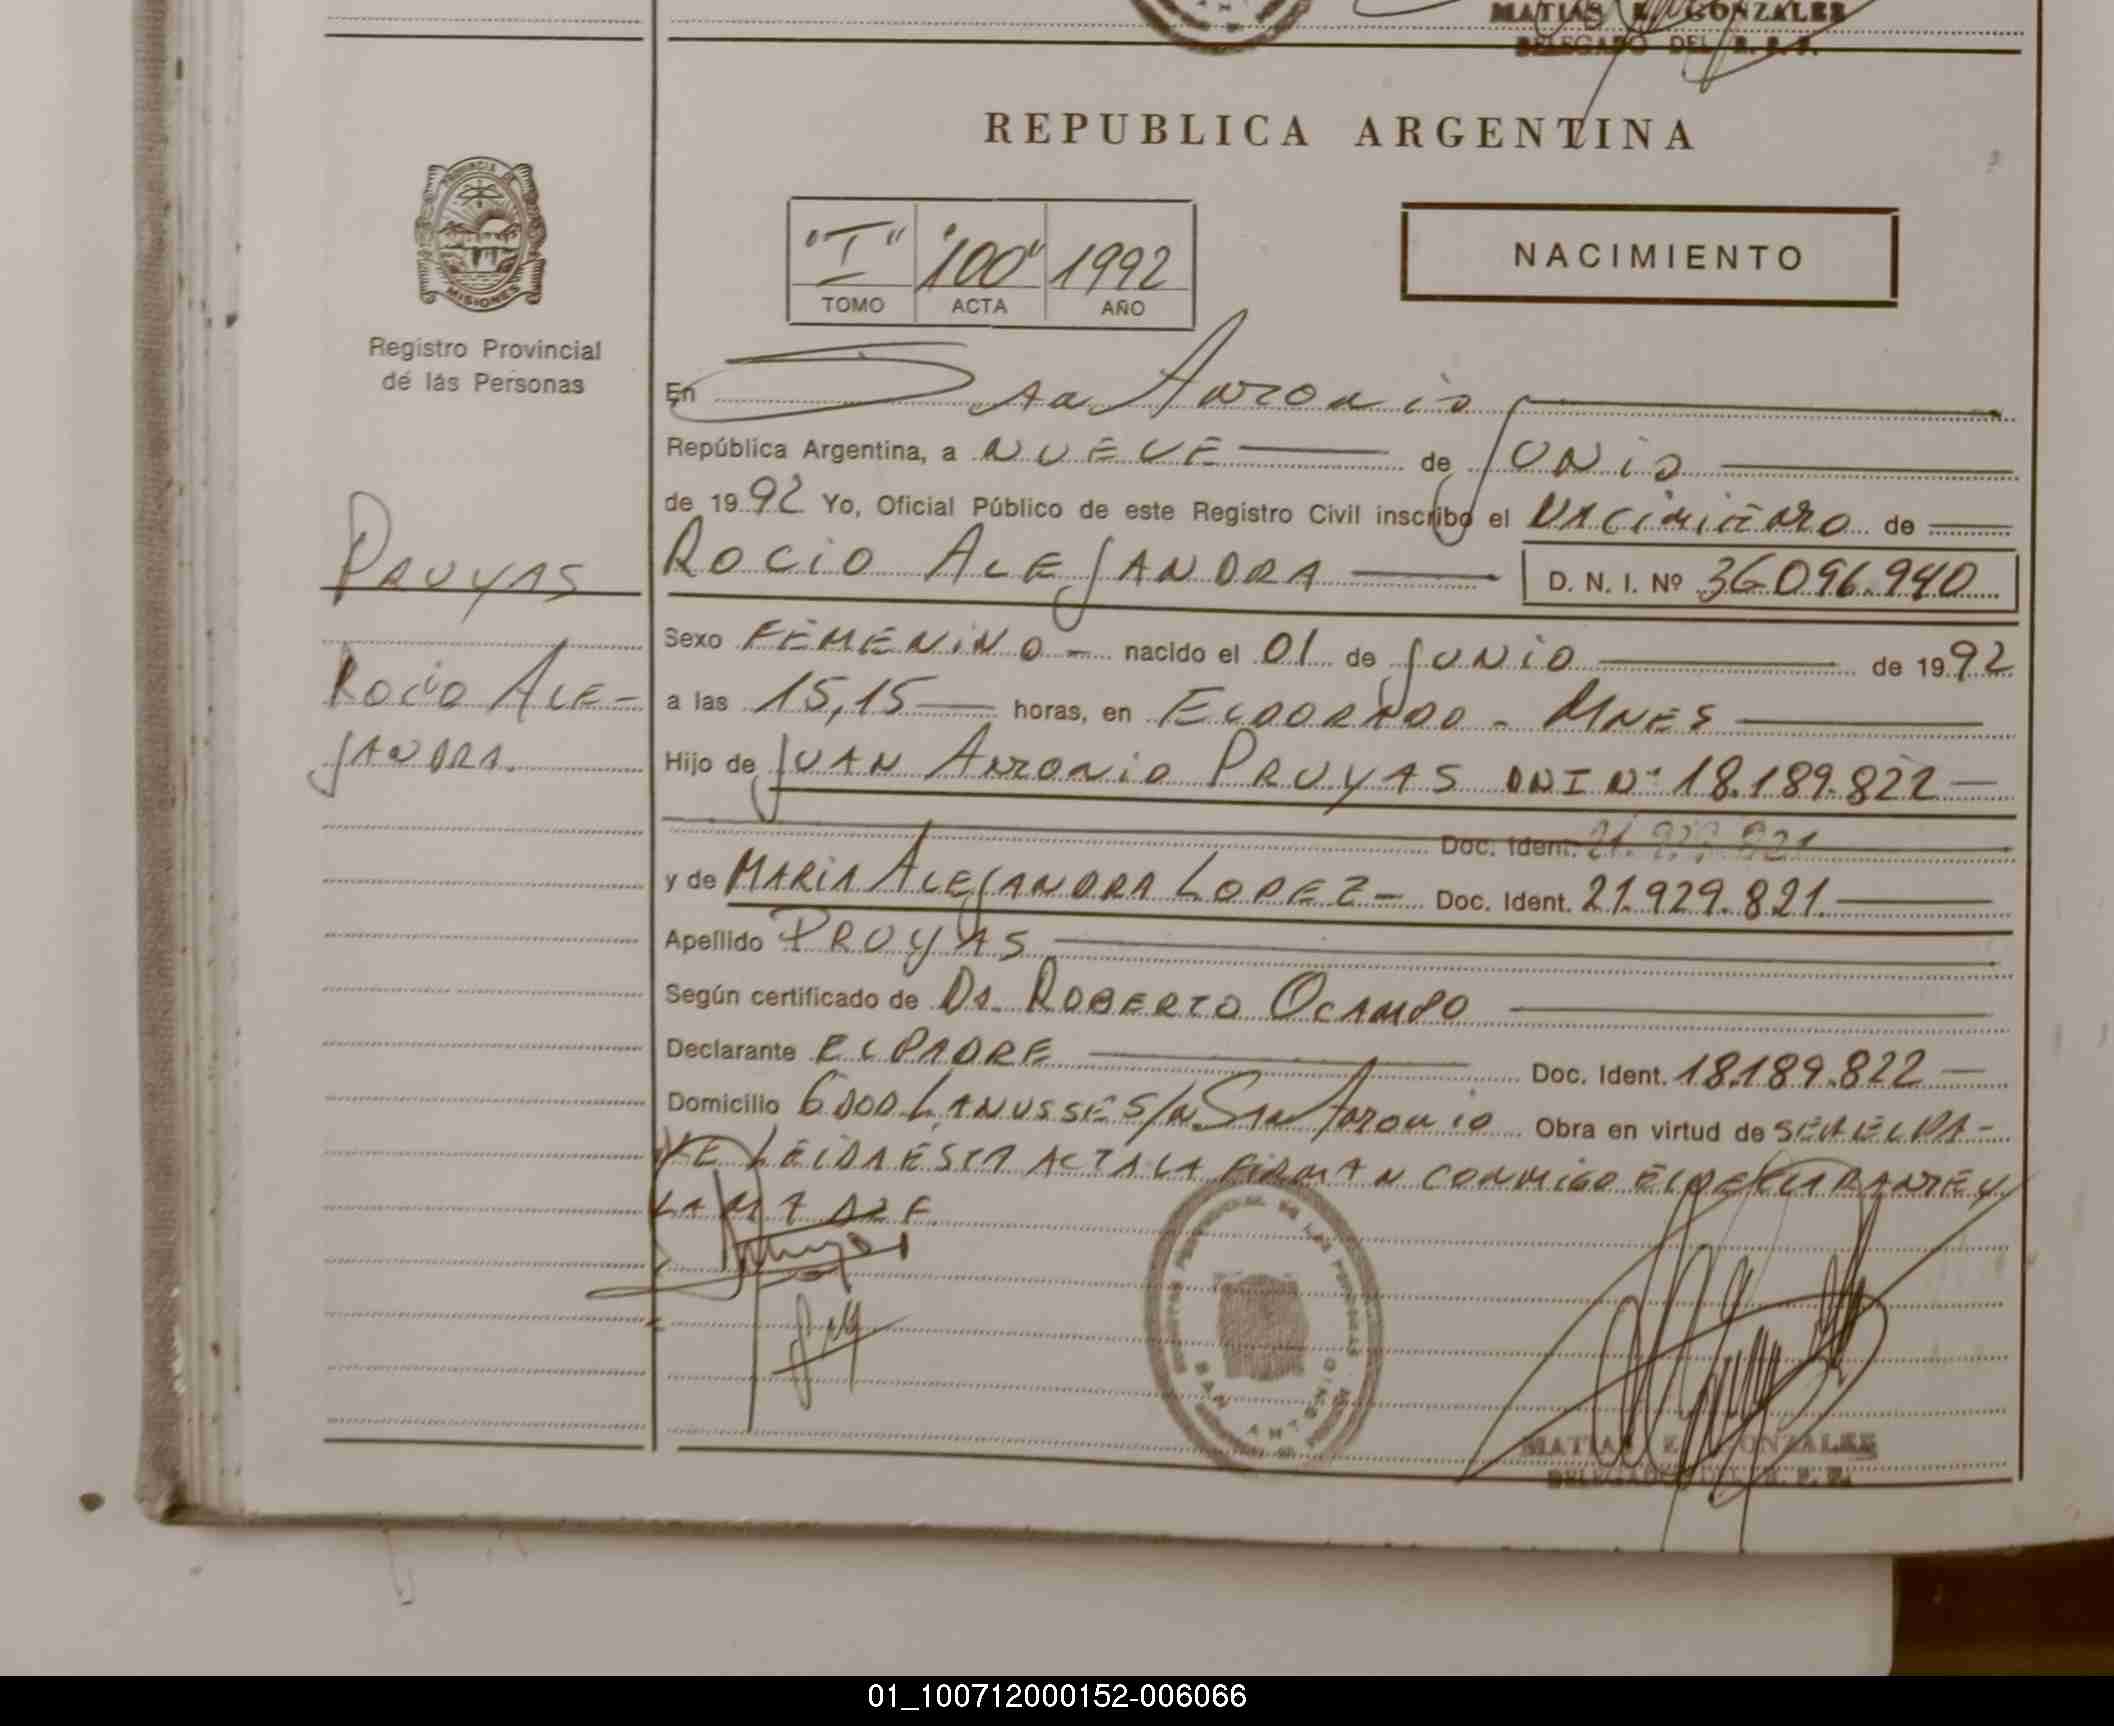 MATIAS E. GONZALES
DELEGADO DEL R. P. P.
REPUBLICA ARGENTINA
PROVINCIA DE
MISIONES
Registro Provincial
de las Personas
"I" "100" 1992
TOMO ACTA AÑO
NACIMIENTO
En San Antonio
República Argentina, a NUEVE de JUNIO
de 1992 Yo, Oficial Público de este Registro Civil inscribo el NACIMIENTO de
PRUYAS
ROCIO ALEJANDRA D. N. I. Nº 36.096.940
ROCIO ALE-
JANDRA.
Sexo FEMENINO - nacido el 01 de JUNIO de 1992
a las 15,15 horas, en ELDORADO - MNES
Hijo de JUAN ANTONIO PRUYAS DNI Nº 18.189.822
Doc. Ident. 21.929.821
y de MARIA ALEJANDRA LOPEZ - Doc. Ident. 21.929.821
Apellido PRUYAS
Según certificado de Dr. ROBERTO OCAMPO
Declarante EL PADRE Doc. Ident. 18.189.822
Domicilio LANUSSE S/N SAN ANTONIO Obra en virtud de SER EL PA-
LEIDA ESTA ACTA LA FIRMAN CONMIGO EL DECLARANTE Y
LA MADRE
REGISTRO PROVINCIAL DE LAS PERSONAS
SAN ANTONIO
MATIAS E. GONZALES
DELEGADO DEL R. P. P.
01_100712000152-006066